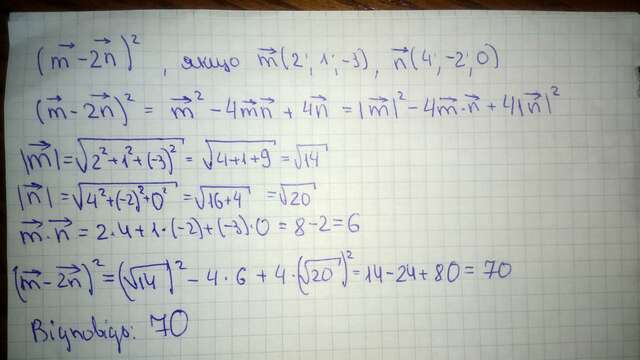 (m⃗ - 2n⃗)², якщо m⃗(2; 1; -3), n⃗(4; -2; 0)
(m⃗ - 2n⃗)² = m⃗² - 4m⃗n⃗ + 4n⃗ = |m⃗|² - 4m⃗·n⃗ + 4|n⃗|²
|m⃗| = √(2² + 1² + (-3)²) = √(4+1+9) = √14
|n⃗| = √(4² + (-2)² + 0²) = √(16+4) = √20
m⃗·n⃗ = 2·4 + 1·(-2) + (-3)·0 = 8 - 2 = 6
(m⃗ - 2n⃗)² = (√14)² - 4·6 + 4·(√20)² = 14 - 24 + 80 = 70
Відповідь: 70